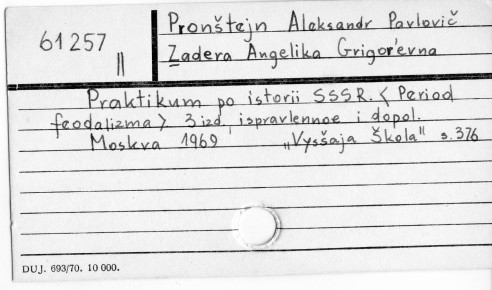 61257
II
Pronštejn Aleksandr Pavlovič
Zadera Angelika Grigor'evna
Praktikum po istorii SSSR. < Period
feodalizma > 3 izd. ispravlennoe i dopol.
Moskva 1969 „Vysšaja Škola" s. 376
DUJ. 693/70. 10 000.